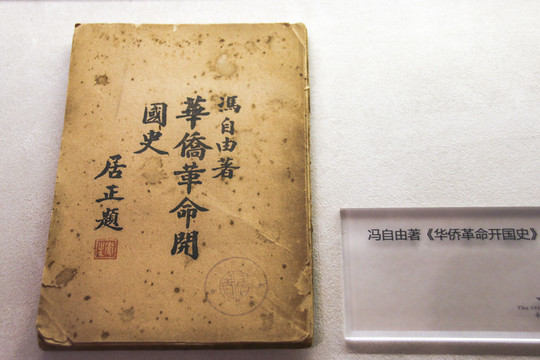 馮自由著
華僑革命開
國史
居正題
冯自由著《华侨革命开国史》